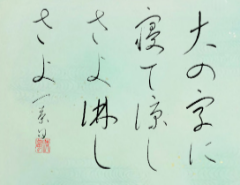 大の字に
寝て涼し
さよ淋し
さよ 一茶